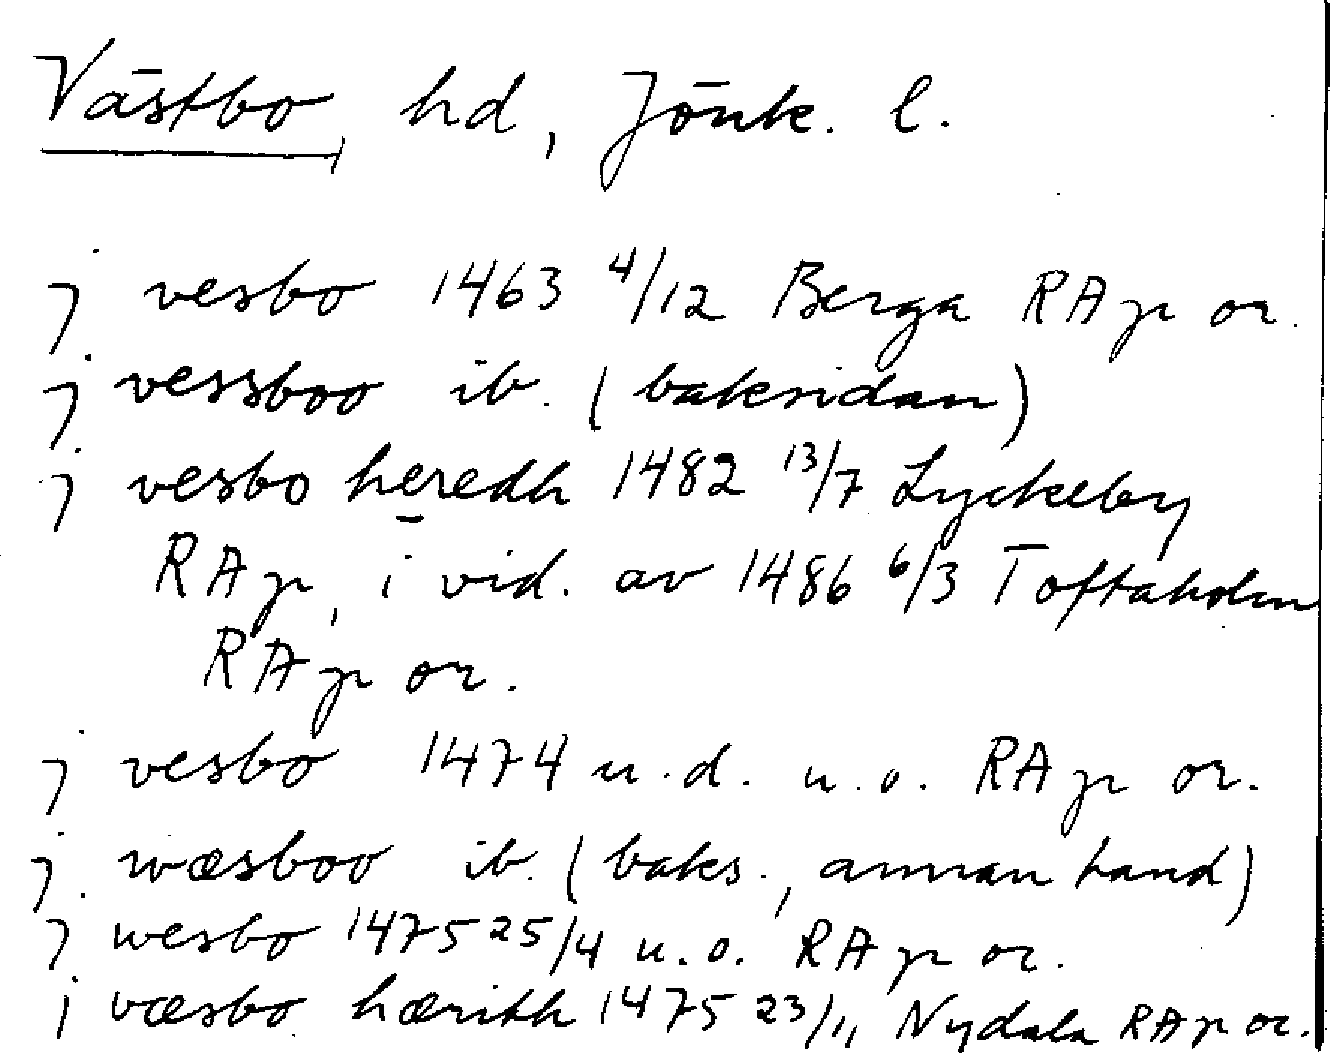 Västbo, hd, Jönk. l.
j vesbo 1463 4/12 Berga RAp or.
j vessboo ib. (baksidan)
j vesbo heredh 1482 13/7 Lyckeby
RAp, i vid. av 1486 6/3 Toftaholm
RAp or.
j vesbo 1474 u.d. u.o. RAp or.
j wæsboo ib. (baks., annan hand)
j wesbo 1475 25/4 u.o. RAp or.
j væsbo hærith 1475 23/11 Nydala RAp or.